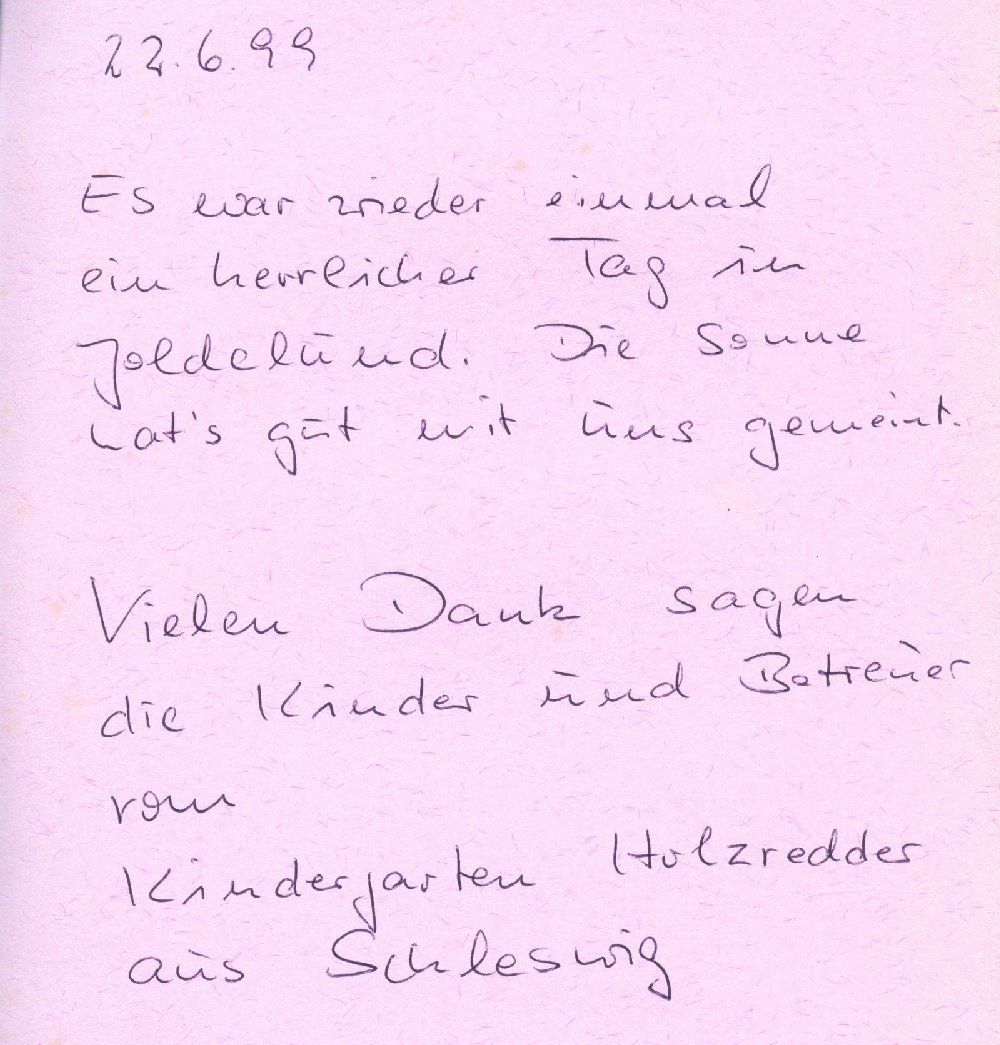 22.6.99
Es war wieder einmal
ein herrlicher Tag in
Joldelund. Die Sonne
hat's gut mit uns gemeint.
Vielen Dank sagen
die Kinder und Betreuer
vom
Kindergarten Holzredder
aus Schleswig